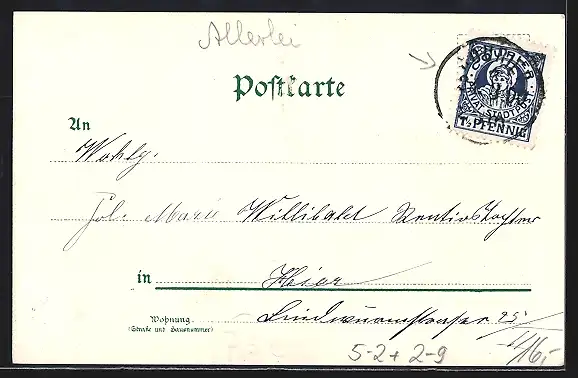 Allerlei
Postkarte
COURIER
PRIVAT STADTPOST
1½ PFENNIG
An
Wohlg.
Frl. Marie Willibald Rentierstochter
in Hier
Wohnung
(Straße und Hausnummer)
Lindwurmstrasse 25
5-2+2-9
16,-